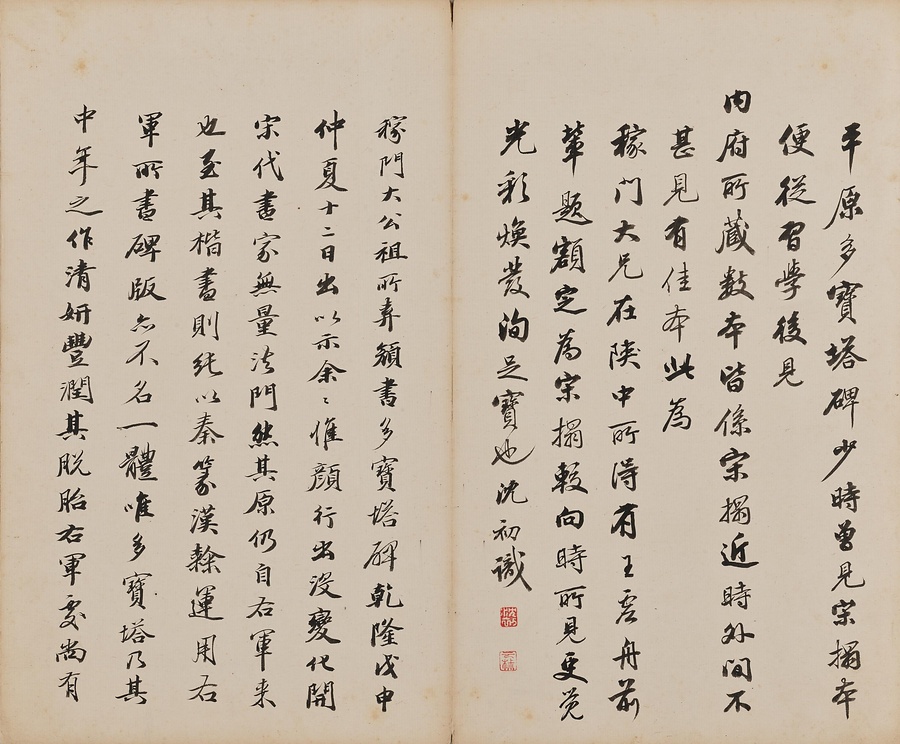 平原多寶塔碑少時曾見宋搨本
便從習學後見
內府所藏數本皆係宋搨近時外間不
甚見有佳本此為
稼門大兄在陝中所得有王虛舟前
輩題額定為宋搨較向時所見更覺
光彩煥發洵足寶也沈初識
稼門大公祖所弆顏書多寶塔碑乾隆戊申
仲夏十二日出以示余〻惟顏行出沒變化開
宋代書家無量法門然其原仍自右軍来
也至其楷書則純以秦篆漢隸運用右
軍所書碑版亦不名一體唯多寶塔乃其
中年之作清妍豐潤其脫胎右軍處尚有